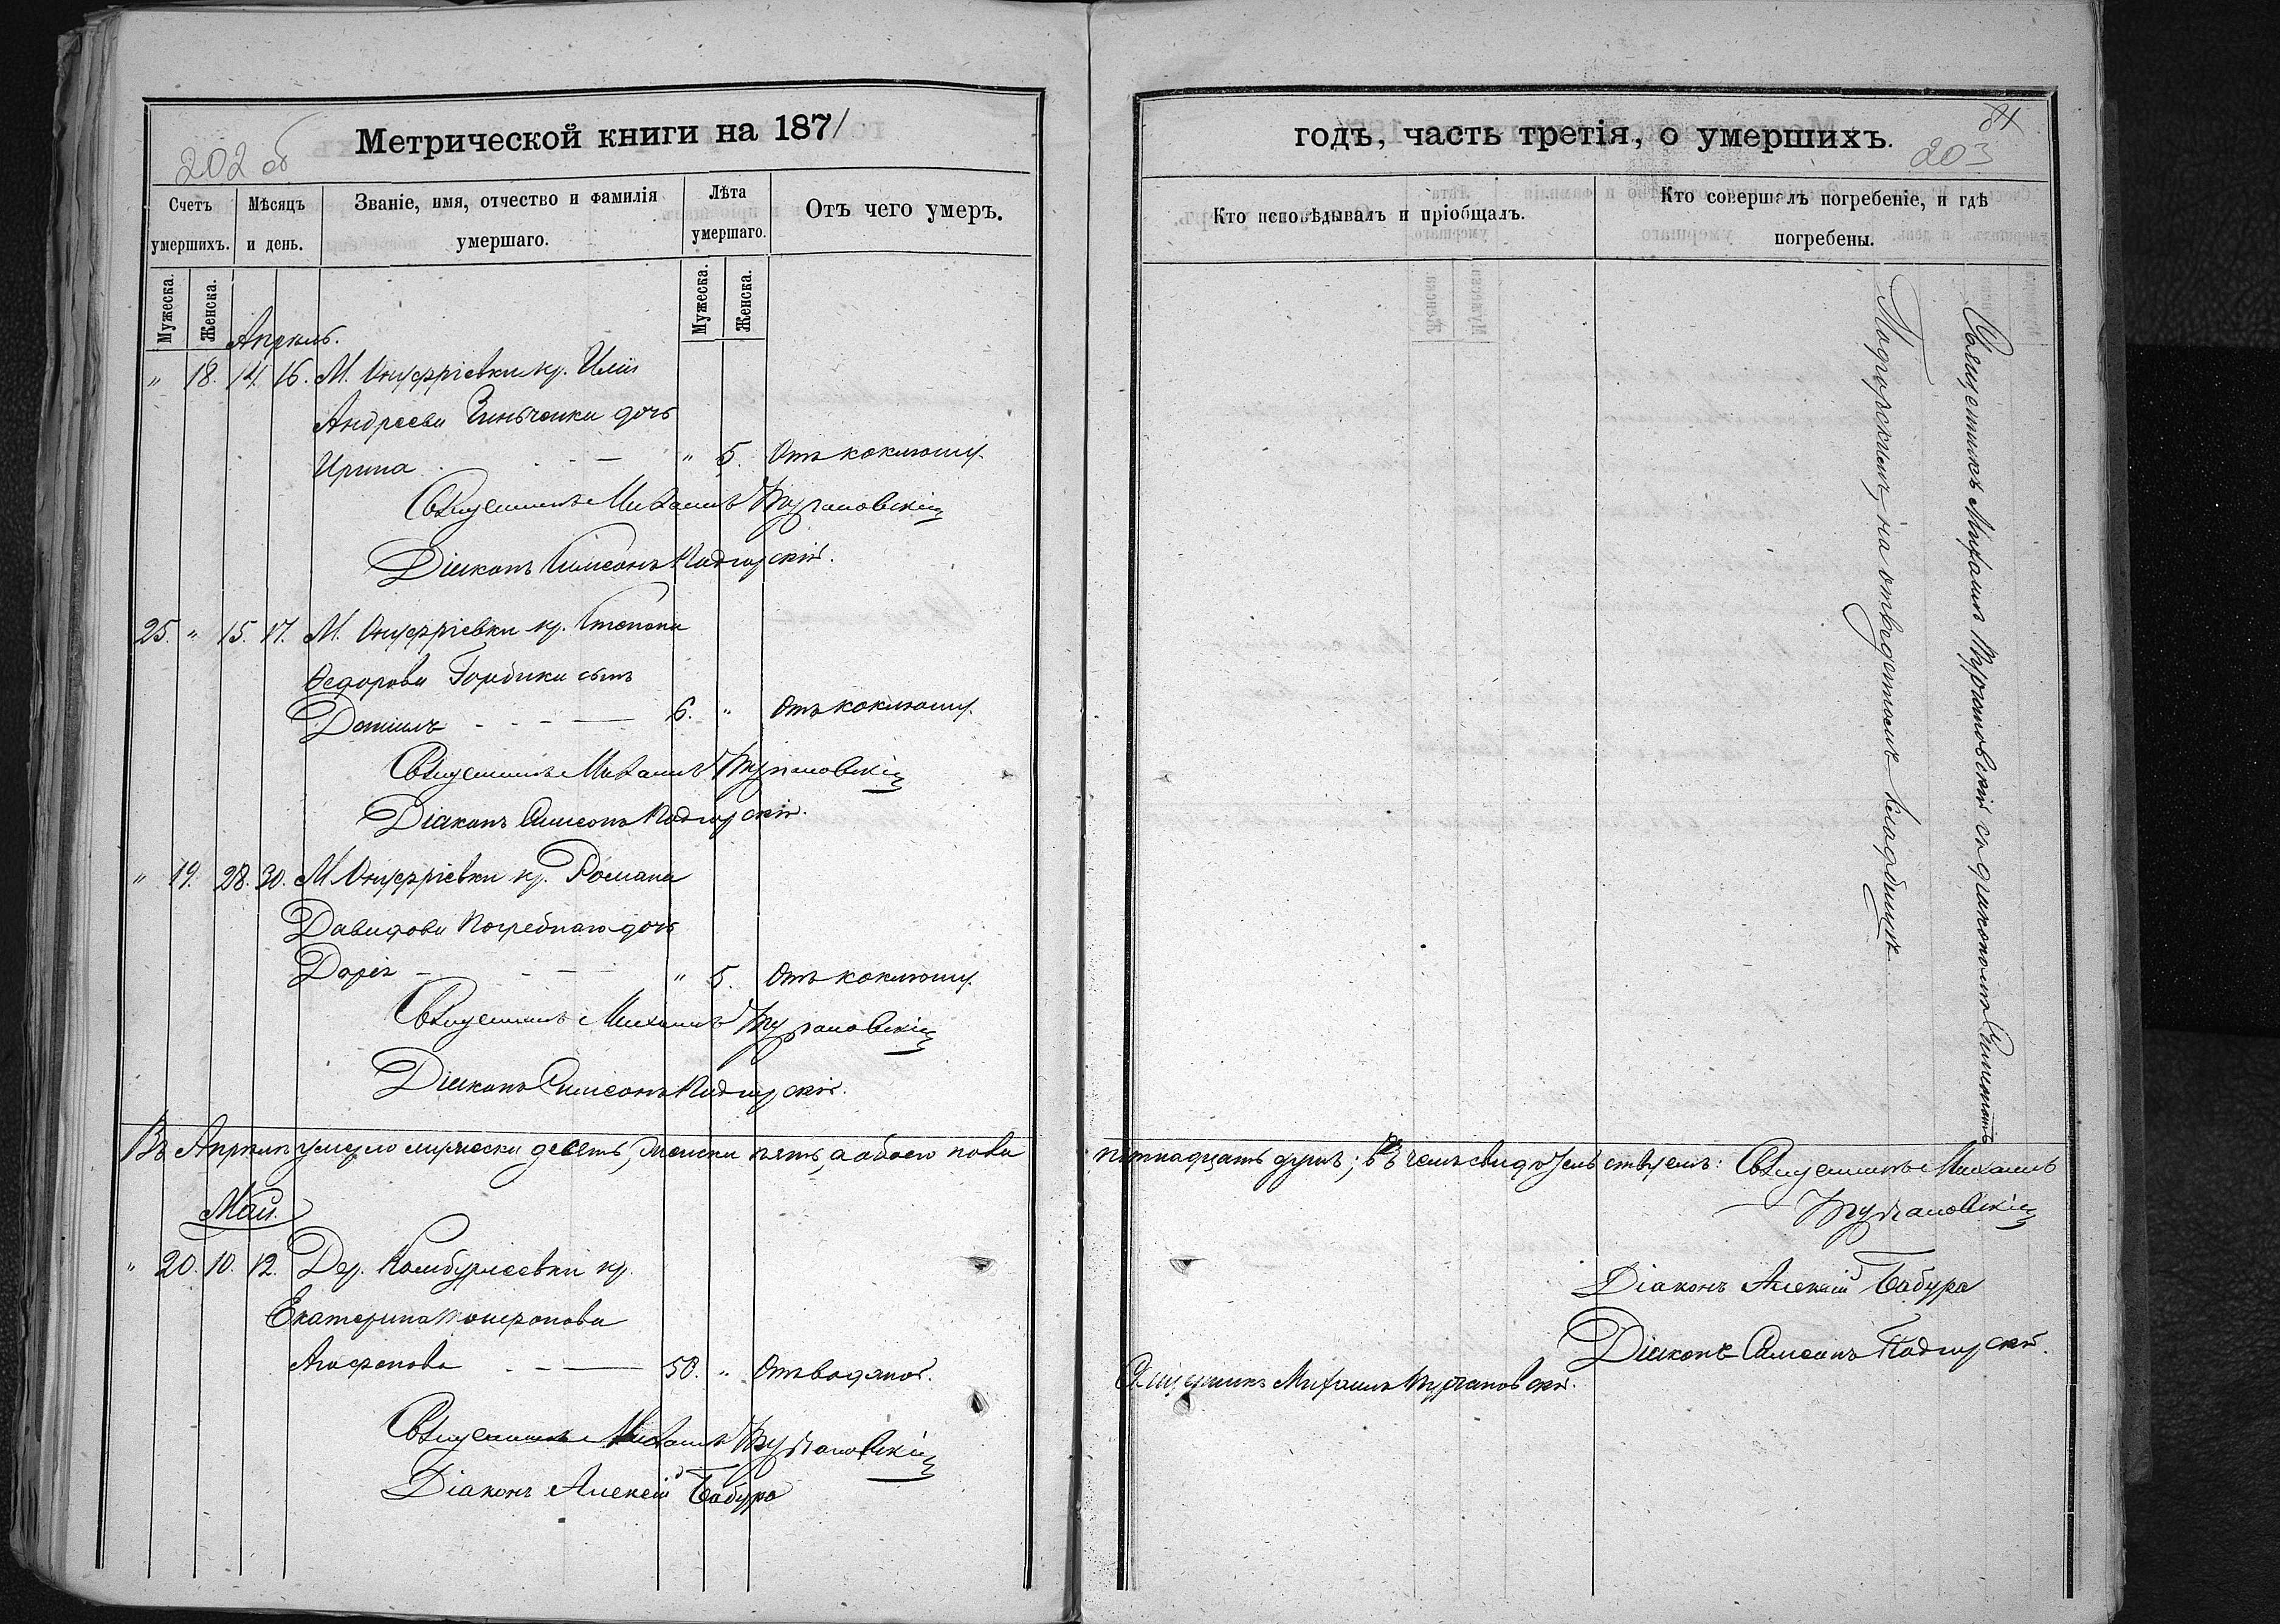 Метрической книги на 1871
202 об
Счетъ умершихъ.
Мѣсяцъ и день.
Званіе, имя, отчество и фамилія умершаго.
Лѣта умершаго.
Отъ чего умеръ.
Мужеска. Женска.
Мужеска. Женска.
Апрѣль.
" 18. 14. 16. М. Онуфріевки кр. Иліи
Андреева Зинченка дочь
Ирина - - " 5. Отъ коклюшу.
Священникъ Михаилъ
Діаконъ Симеонъ Подгорскій.
25. " 15. 17. М. Онуфріевки кр. Стефана
Федорова Горбика сынъ
Даніилъ - - - 6. " Отъ коклюшу.
Священникъ Михаилъ
Діаконъ Симеонъ Подгорскій.
" 19. 28. 30. М. Онуфріевки кр. Романа
Давидова Погребнаго дочь
Дарія - - - " 5. Отъ коклюшу.
Священникъ Михаилъ
Діаконъ Симеонъ Подгорскій.
Въ Апрѣлѣ умерло мужеска девять, женска пять, а обоего пола
Май.
" 20. 10. 12. Дер. Камбурлеевки кр.
Екатерина
Агафонова - - 50. " Отъ водяной.
Священникъ Михаилъ
Діаконъ Алексій Бабура
годъ, часть третія, о умершихъ.
84
203
Кто исповѣдывалъ и пріобщалъ.
Кто совершалъ погребеніе, и гдѣ погребены.
Священникъ Михаилъ съ діакономъ Симеономъ
Подгорскимъ, на отведенномъ кладбищѣ.
пятнадцать душъ; въ чемъ свидѣтельствуемъ: Священникъ Михаилъ
Діаконъ Алексій Бабура
Діаконъ Симеонъ Подгорскій.
Священникъ Михаилъ